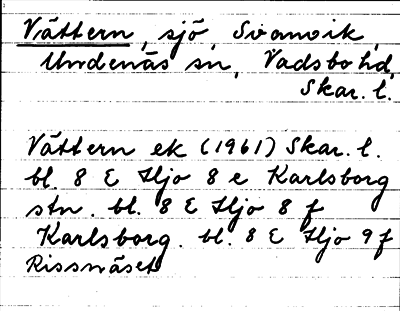 Vättern, sjö, Svanvik,
Undenäs sn, Vadsbo hd,
Skar. l.
Vättern ek (1961) Skar. l.
bl. 8 E Hjo 8 e Karlsborg
stn. bl. 8 E Hjo 8 f
Karlsborg. bl. 8 E Hjo 9 f
Rissnäset